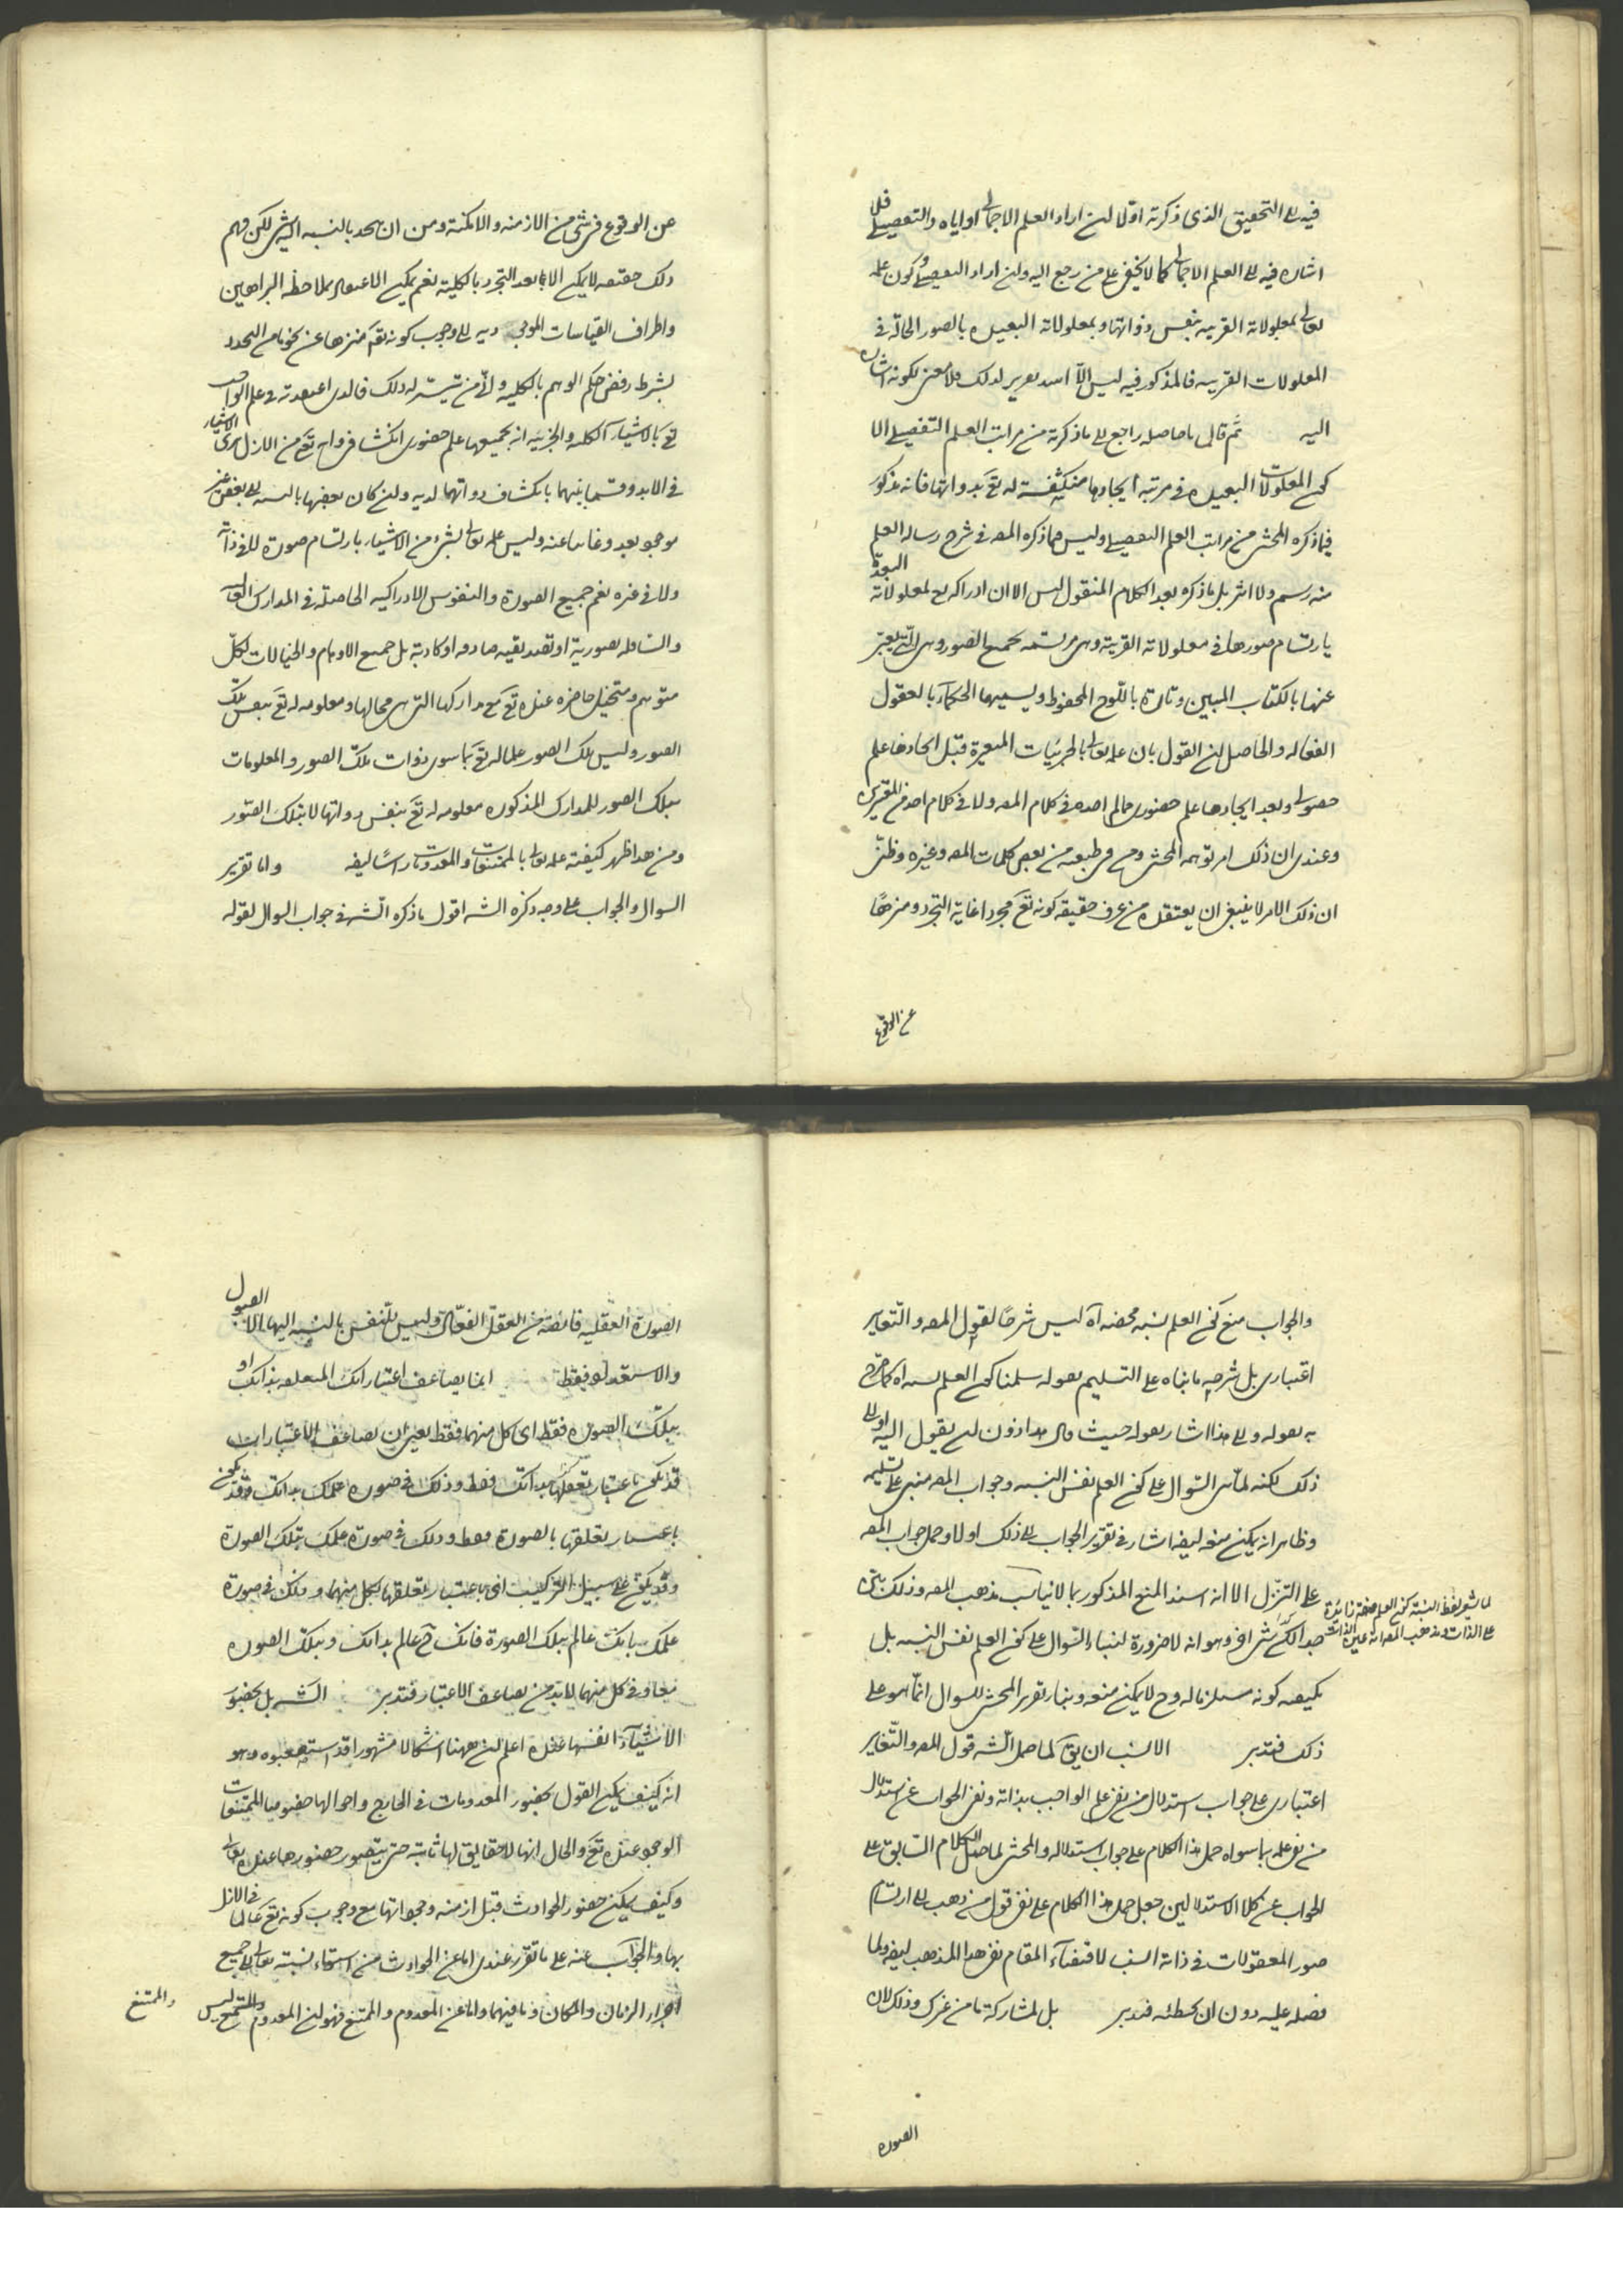 فيه الى التحقيق الذى ذكرته اوّلا لن اراد العلم الاجمالى او اياه والتفصيلى فلا
اشارة فيه الى العلم الاجمالى كما لا يخفى على من رجع اليه ولن اراد التفصيلى وكون علمه
تعالى بمعلولاته القريبه بنفس ذواتها وبمعلولاته البعيده بالصور الحالّه فى
المعلولات القريبه فالمذكور فيه ليس الّا تقرير لذلك فلا معنى لكونه اشارة
اليه ثم قال ما حاصله راجع الى ما ذكرته من مراتب العلم التفصيلى الا
كون المعلولات البعيده فى مرتبه ايجادها منكشفة له تع بذواتها فانه مذكور
فيما ذكره المحشى من مراتب العلم التفصيلى وليس مما ذكره المصـ فى شرح رساله العلم
منه رسم ولا اثر بل ما ذكره بعد الكلام المنقول ليس الا ان ادراكه تع لمعلولاته البعيدة
بارتسام صورها فى معلولاته القريبة وهى مرتسمه بجميع الصور وهى الّتى يعبّر
عنها بالكتاب المبين وتارة باللّوح المحفوظ ويسميها الحكماء بالعقول
الفعاله والحاصل لن القول بان علمه تعالى بالجزئيات المتغيرة قبل ايجادها علم
حصولى وبعد ايجادها علم حضورى مما لم اجده فى كلام المصـ ولا فى كلام احد من المعتبرين
وعندى ان ذلك امر توهمه المحشى ومن فى طبقته من بعض كلمات المصـ وغيره وظنّى
ان ذلك الامر لا ينبغى ان يعتقده من عرف حقيقه كونه تع مجردا غاية التجرد ومنزهًا
عن الوقوع
عن الوقوع فى شئ من الازمنه والامكنة ومن ان يتحدد بالنسبه اليه شئ لكن فهم
ذلك حقيقه لا يمكن الا بعد التجرد بالكلية نعم يمكن الاعتقاد بملاحظه البراهين
واطراف القياسات المؤديه الى وجوب كونه تع منزها عن نحو ما من التحدد
بشرط رفض حكم الوهم بالكليه ولمن تيسّر له ذلك فالذى اعتقدته فى علم الواجب
تع بالاشياء الكليه والجزئيه انه بجميعها علم حضورى انكشافى واحد تع من الازل يرى الاشياء
فى الابد وقسما بينهما بانكشاف ذواتهما لديه ولن كان بعضها بالنسبه الى بعض غير
موجود بعد وغائبا عنه وليس علمه تعالى بشئ من الاشياء بارتسام صورة لا فى ذاته
ولا فى غيره نعم جميع الصورة والنقوش الادراكيه الحاصله فى المدارك العاليه
والسافله تصوريه او تصديقيه صادقه او كاذبة بل جميع الاوهام والخيالات لكلّ
متوهم ومتخيل حاضره عنده تع مع مداركها التى هى محالها ومعلومه له تع بنفس تلك
الصور وليس تلك الصور علما له تع بما سوى ذوات تلك الصور والمعلومات
بتلك الصور للمدارك المذكوره معلومه له تع بنفس ذواتها لا بتلك الصّور
ومن هذا ظهر كيفية علمه تعالى بالممتنعات والمعدومات راسًا ليفه واما تقرير
السوال والجواب على وجه ذكره الشـ اقول ما ذكره الشـ فى جواب السوال بقوله
والجواب منع كون العلم نسبه محضه آه ليس شرحًا لقول المصـ والتّغاير
اعتبارى بل شرحه ما بناه على التسليم بقوله سلمنا كون العلم نسبه آه كما صرح
به بقوله والى هذا اشار بقوله حيث قال هذا دون لن يقول اليه او الى
ذلك لكنه لمّا بنى السّوال على كون العلم نفس النسبه وجواب المصـ مبنى على تسليمه
وظاهر انه يمكن منعه ليفه اشار فى تقرير الجواب الى ذلك اولا وحمل جواب المصـ
على التنزّل الا انه اسند المنع المذكور بما لا يناسب مذهب المصـ وذلك بشئ
لما يشعر بلفظ النسبة كون العلم صفة زائدة
على الذات ومذهب المصـ انه عين الذات
اخر وهو انه لا ضرورة لبناء السّوال على كون العلم نفس النسبه بل
يكفيه كونه مستلزما له وح لا يمكن منعه وبناء تقرير المحشى للسوال انّما هو على
ذلك فتدبر الانسب ان يق لما حمل الشـ قول المصـ والتّغاير
اعتبارى على جواب استدلال من نفى علم الواجب بذاته ونفى الجواب عن استدلال
من نفى علمه بما سواه حمل هذا الكلام على جواب استدلاله والمحشى لما حمل الكلام السّابق على
الجواب عن كلا الاستدلالين جعل حمل هذا الكلام على نفى قول من ذهب الى ارتسام
صور المعقولات فى ذاته انسب لاقتضاء المقام نفى هذا المذهب ليفه ولما
فضله عليه دون ان يخطئه فتدبر بل لمشاركة ما من غيرك وذلك لان
الصورة
الصورة العقليه فائضه من العقل الفعّال وليس للنفس بالنسبه اليها الا القبول
والاستعداد فقط انما يضاعف اعتباراتك المتعلقه بذاتك او
بتلك الصوره فقط اى كل منهما فقط يعنى ان تضاعف الاعتبارات
قد يكون باعتبار تعلّقها بذاتك فقط وذلك فى صوره علمك بذاتك وقد يكون
باعتبار تعلقها بالصورة فقط وذلك فى صورة علمك بتلك الصورة
وقد يكون على سبيل التركيب اى باعتبار تعلقها بكل منهما وذلك فى صورة
علمك بانك عالم بتلك الصورة فانك ح عالم بذاتك وبتلك الصوره
معا وفى كل منهما لا بد من تضاعف الاعتبار فتدبر الشـ بل بحضور
الاشياء انفسها عنده اعلم لن ههنا اشكالا مشهورا قد استصعبوه وهو
انه كيف يمكن القول بحضور المعدومات فى الخارج واحوالها خصوصا الممتنعات
الوجود عنده تع والحال انها لا حقايق لها ثابتة حتى يتصور حضورها عنده تعالى
وكيف يمكن حضور الحوادث قبل ازمنه وجوداتها مع وجوب كونه تع عالما فى الازل
بها والجواب عنه على ما تقرر عندى اما عن الحوادث فمن استواء نسبته تعالى الى جميع
اجزاء الزمان والمكان وما فيهما واما عن المعدوم والممتنع فهو لن المعدوم والممتنع ليس
والممتنع